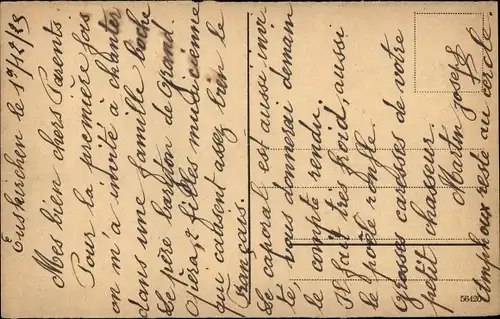 Euskirchen le 19/12/25
Mes bien chers Parents.
Pour la première fois
on m'a invité à chanter
dans une famille boche
Le père baryton de Grand
Opéra, 2 filles musiciennes
qui causent assez bien le
français.
Le caporal est aussi invi
té, vous donnerai demain
le compte rendu.
Il fait très froid, aussi
le poêle ronfle.
Grosses caresses de votre
petit chasseur.
Martin Joseph
resté au cercle
56420